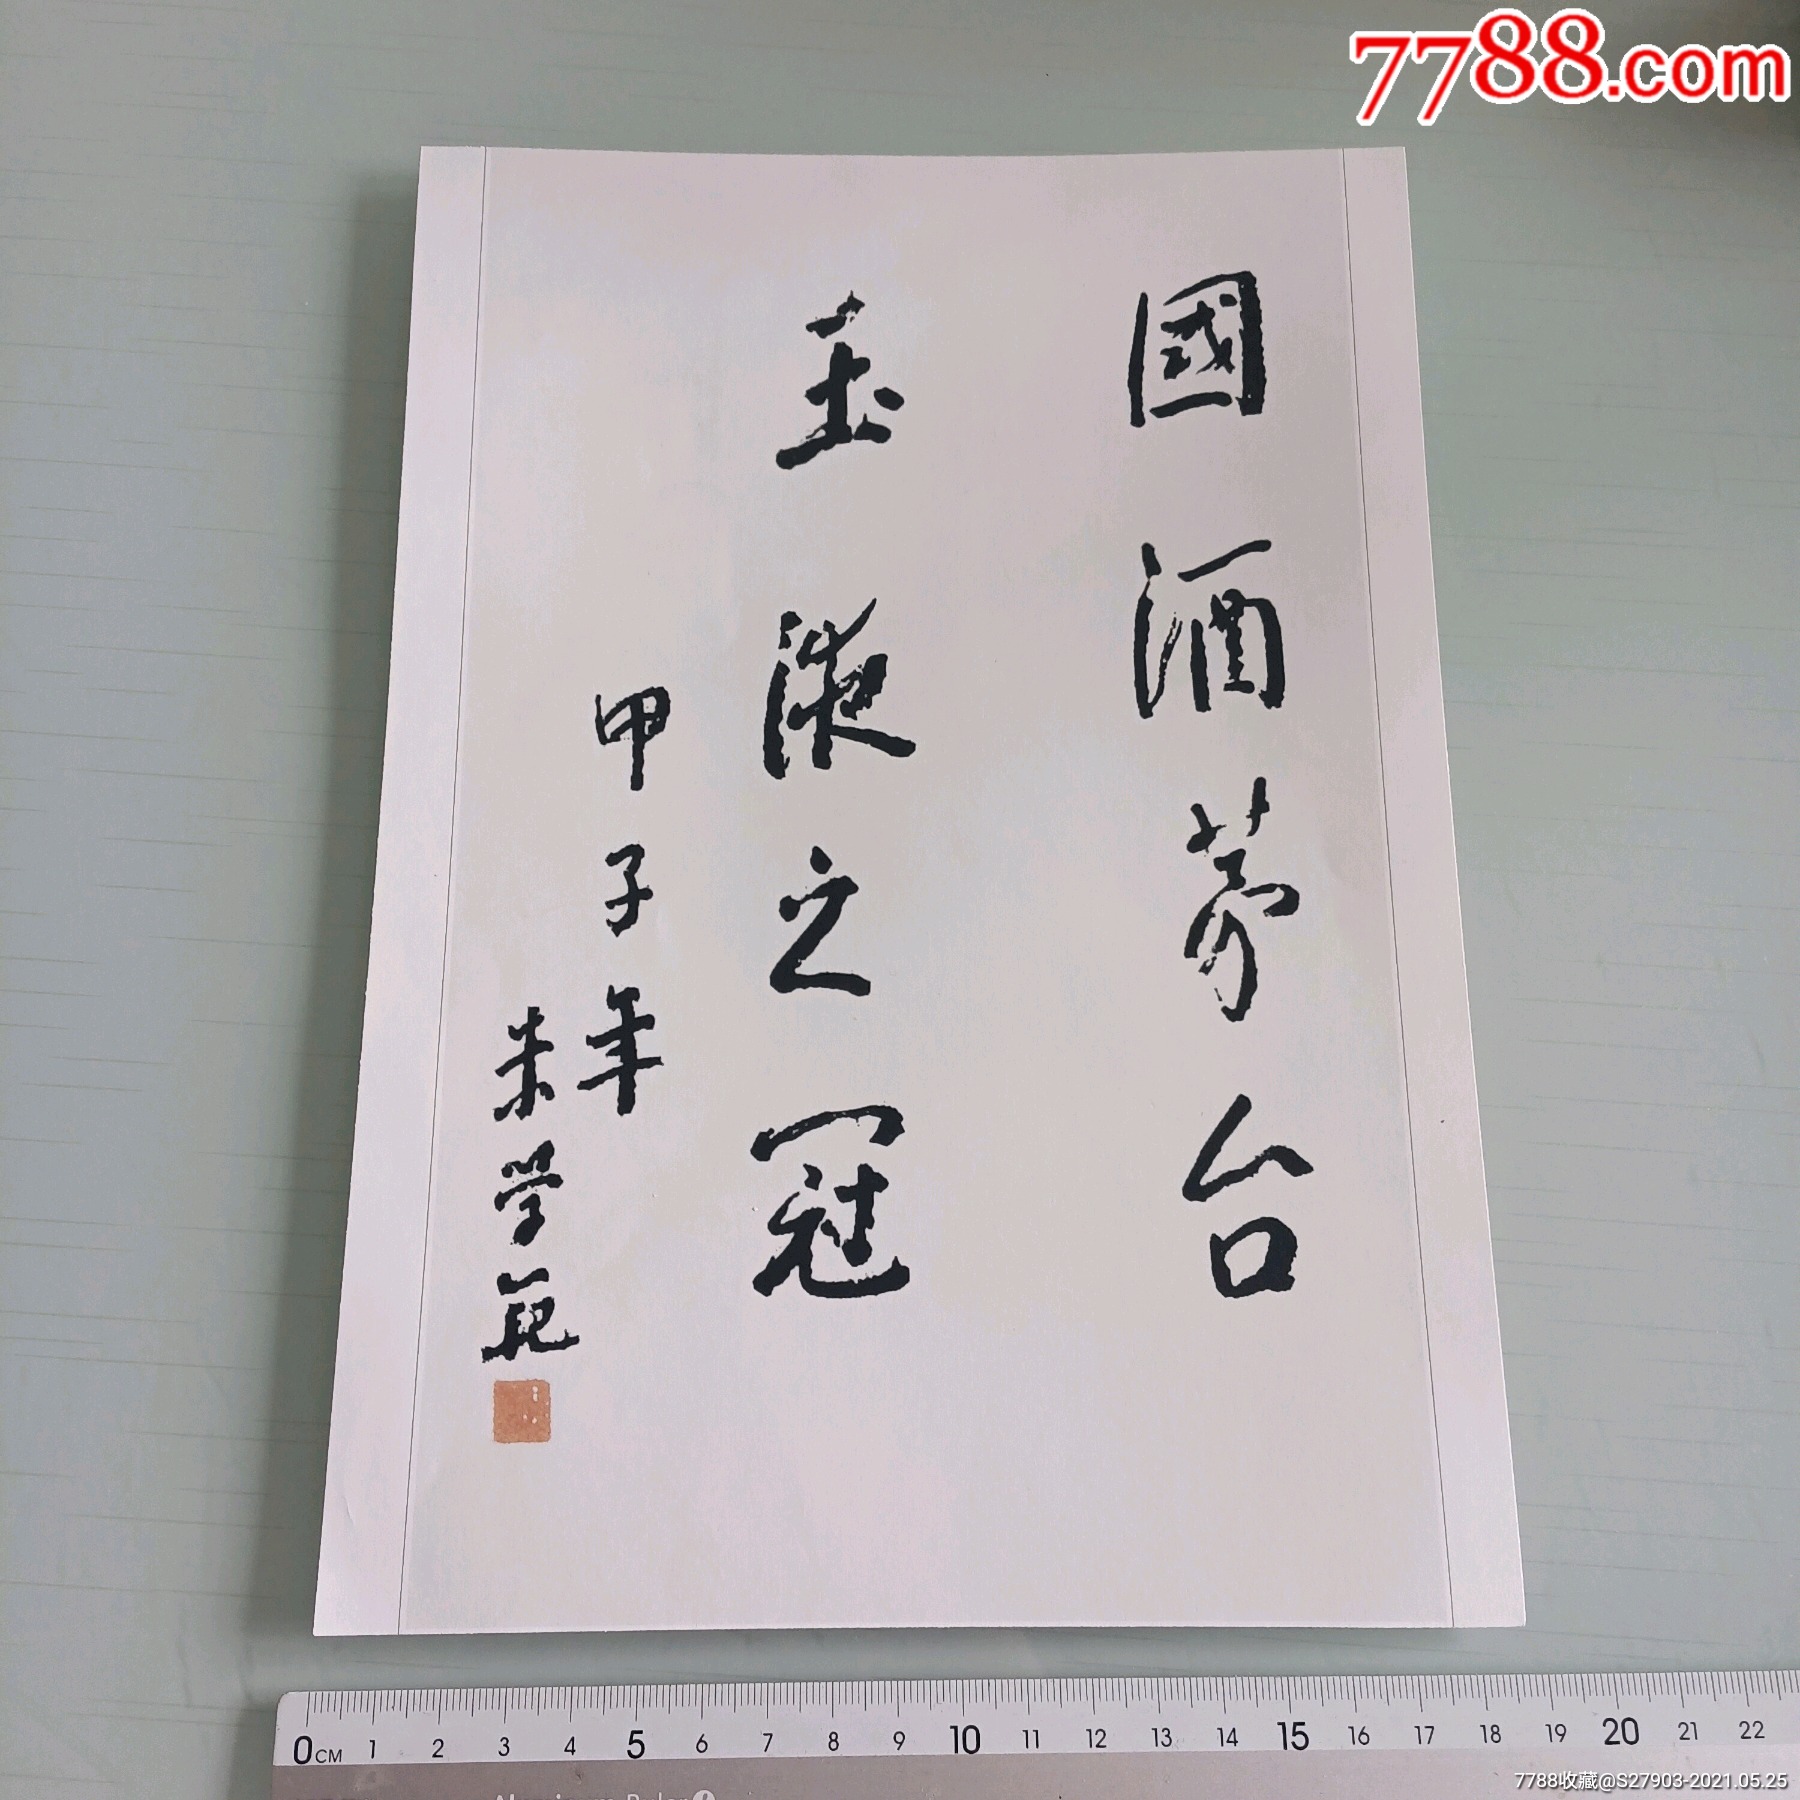 7788.com
國酒茅台
玉液之冠
甲子年
朱学范
0CM 1 2 3 4 5 6 7 8 9 10 11 12 13 14 15 16 17 18 19 20 21 22
7788收藏@S27903-2021.05.25